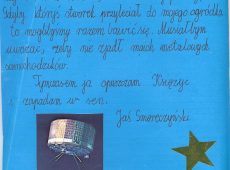 Gdyby któryś stworek przyleciał do mojego ogródka
to moglibyśmy razem bawić się. Musiałbym
uważać, żeby nie zjadł moich metalowych
samochodzików.
Tymczasem ja opuszczam Księżyc
i zapadam w sen.
Jaś Smoręczyński